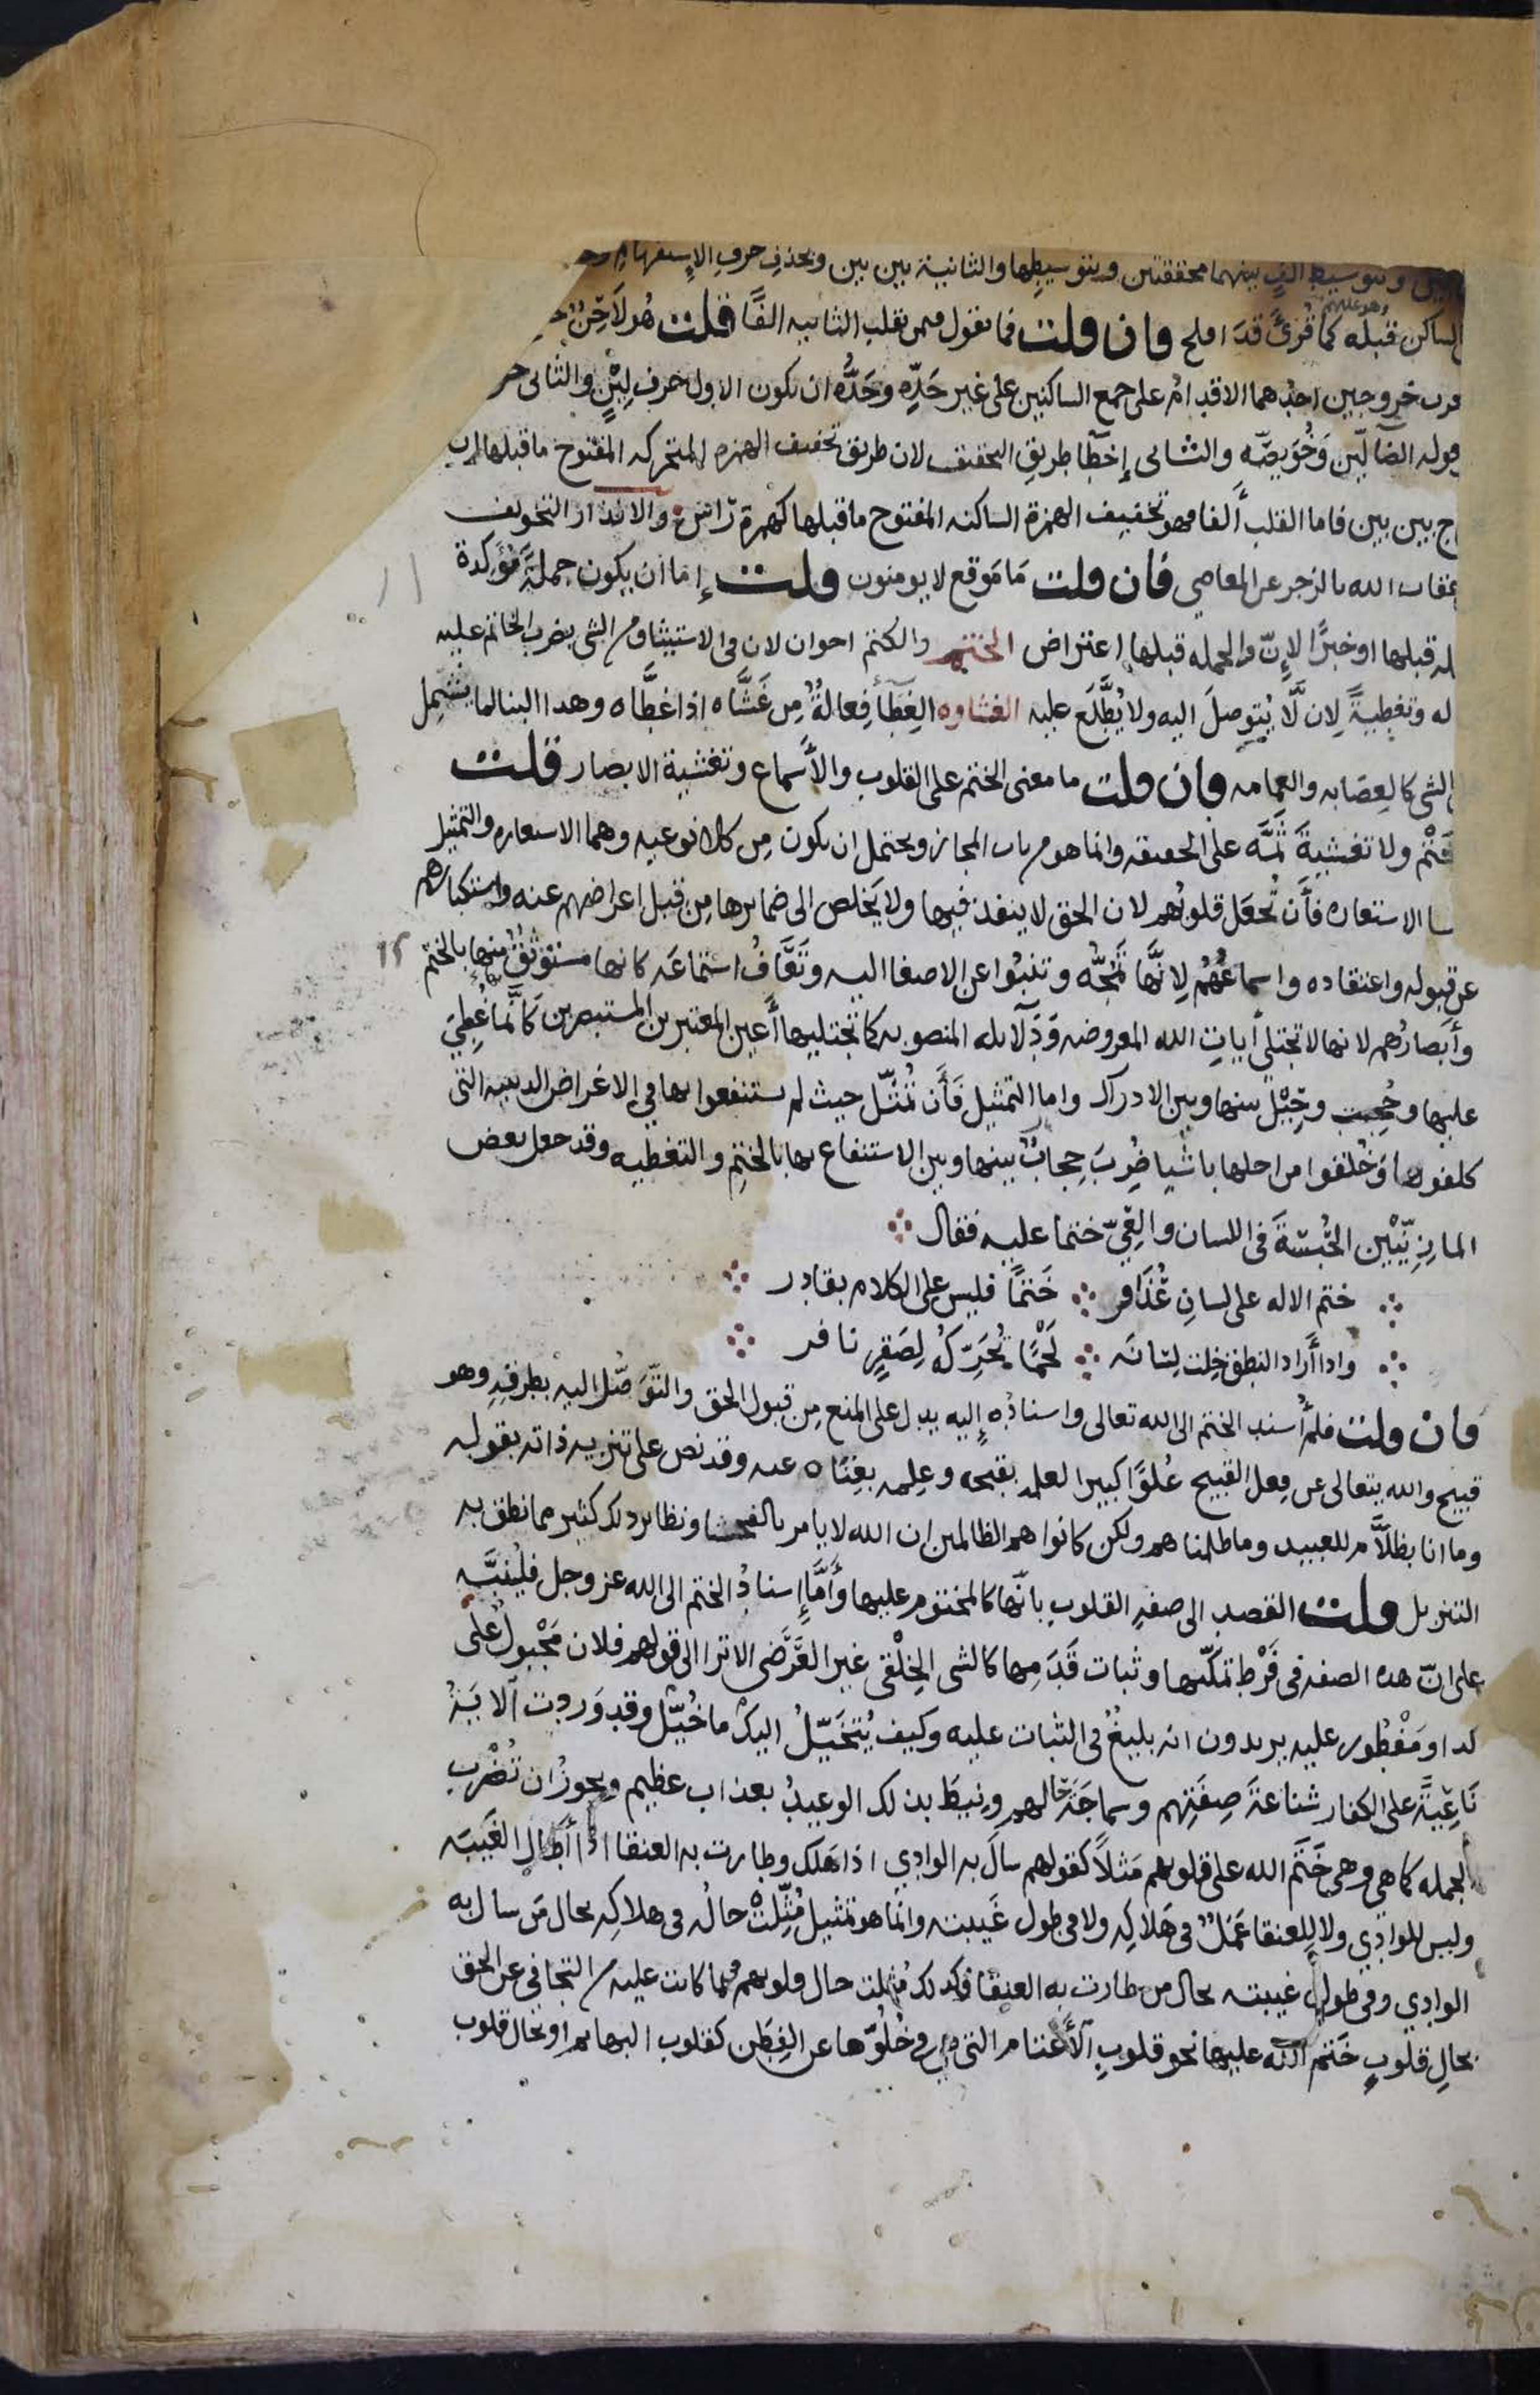 وبتوسيط الفٍ بينهما محققتين وبتوسيطِها والثانية بين بين وبحذفِ حرفِ الإستفهامِ
وهو عليهم
الساكن قبله كما قُرئَ قدَ افلح فان قلت فما تقول فيمن يقلب الثانيه الفًا قلت هُو لَاحِنٌ
خروجين احدُهما الاقدامُ على جمع الساكنين على غير حَدِّه وحَدُّه ان يكون الاول حرف لِيْنٍ والثانى حر
قوله الضآلّين وَخُوَيصّه والثانى إخطَا طريقِ التخفيف لان طريق تخفيف الهمزه المتحركه المفتوح ما قبلها ان
ج بين بين فاما القلب ألفا فهو تخفيف الهمزة الساكنه المفتوح ما قبلها كهمزة رَاس والانذار التخويف
عقاب الله بالزجر عن المعاصي فان قلت مَا مَوقع لا يومنون قلت إمّا ان يكون جملةً مُؤَكِدة
له قبلها او خبرًا لإنّ والجمله قبلها اعتراض الختم والكتم اخوان لان فى الاستيثاق من الشى بضرب الخاتم عليه
له وتغطيةً لان لَّا يُتوصلَ اليه ولا يُطَّلَعَ عليه الغشاوه الغِطَأ فِعالةٌ مِن غَشَّاه اذا غطَّاه وهدا البنا لما يشتمِل
الشى كالعِصَابه والعمامه فان قلت ما معنى الختم على القلوب والأَسماع وتغشية الابصار قلت
ختْم ولا تغشيةَ ثَمَّه على الحقيقه وانما هو من باب المجاز ويحتمل ان يكون مِن كلا نوعيه وهما الاستعاره والتمثيل
ا الاستعاره فأن تُجعَل قلوبُهم لان الحق لا ينفذ فيها ولا يَخلص الى ضمايرها مِن قبل اعراضهم عنه واستكبارهم
عن قبوله واعتقاده واسماعُهُم لِانَّها تَمُجُّه وتنبُوا عن الاصغا اليه وتَعَافُ استماعَه كانها مستوثَقٌ منها بالختم
وأَبصارُهم لانها لا تجتلي أيات الله المعروضه وَدَلآيله المنصوبه كما تجتليها أَعين المعتبرين المستبصرين كأنَّما غُطِيَ
عليها وحُجبت وحِيْل بينها وبين الادراك واما التمثيل فَأن تُمثّل حيث لم يستنفعوا بها في الاغراض الدينيه التى
كلفوها وَخُلقوا من اجلها باشيا ضُرِبَ حِجابٌ بينها وبين الاستنفاع بها بالختمِ والتغطيه وقد جعل بعض
المازِنِيّيْن الحُبسَةَ فى اللسان والعِيَّ ختما عليه فقال
ختم الاله على لسانِ عُذَافر خَتمًا فليس على الكلام بقادر
واذا أراد النطق خِلت لِسَانَه لَحْمًا تُحَرِّكُ لِصَقرٍ نافر
فان قلت فلم أُسند الختم الى الله تعالى واسنادُه إليه يدل على المنع مِن قبول الحق والتّوَصُّل اليه بطرقِهِ وهو
قبيح والله يتعالى عن فعل القبيح عُلوًّا كبيرا لعلمِه بقبحه وعِلمه بغِناه عنه وقد نص على تنزيه ذاته بقوله
وما انا بظلاَّم للعبيد وما ظلمناهم ولكن كانوا هم الظالمين ان الله لا يامر بالفحشا ونظاير ذلك كثير مما نطق به
التنزيل قلت القصد الى صفةِ القلوبِ بانّها كالمختوم عليها وأَمَّا إسنادُ الختم الى الله عز وجل فلِيُنبَّه
على انّ هذه الصفه فى فَرْط تمكّنها وثبات قَدَمِها كالشى الخِلْقى غير العَرَضى الا ترا الى قولهم فلان مَجْبولٌ على
كدا ومَفْطُور عليه يريدون انه بليغٌ فى الثبات عليه وكيف يُتخَيّلُ اليك ما خُيّل وقد وَردت آلايَةُ
نَاعِيَةً على الكفار شناعةَ صِفَتِهم وسماجَةَ حالهم ونِيطَ بذلك الوعيدُ بعذاب عظيم ويجوزُ ان تُضْرب
الجمله كما هى وهى خَتَم الله على قلوبهم مَثلاً كقولهم سالَ به الوادي اذا هَلك وطارت به العنقا اذا أطَال الغَيبَه
وليس للوادِي ولا لِلعنقا عَمَلٌ فى هَلاكِه ولا فى طول غَيبته وانّما هو تمثيل مُثِّلتْ حالُه فى هلاكِه بحال مَن سال به
الوادِي وفى طولِ غيبته بحال من طارت به العنقا فكذلك مُثِلت حال قلوبهم فيما كانت عليه من التجافى عن الحق
بحالِ قلوبٍ خَتَم اللّه عليها نحو قلوبِ الأَغتام التى هى فى خُلُوّها عن الفِطَن كقلوب البهايم او بحال قلوب